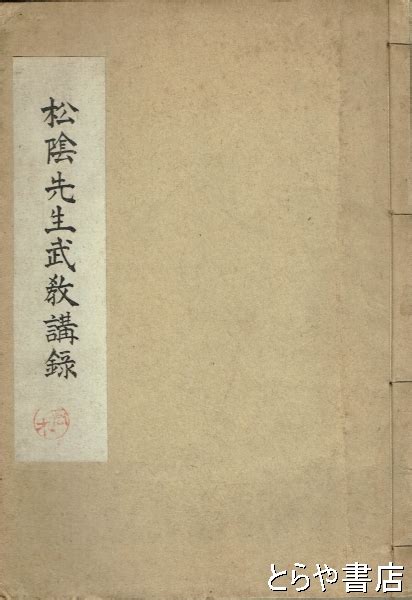 松陰先生武教講錄
とらや書店